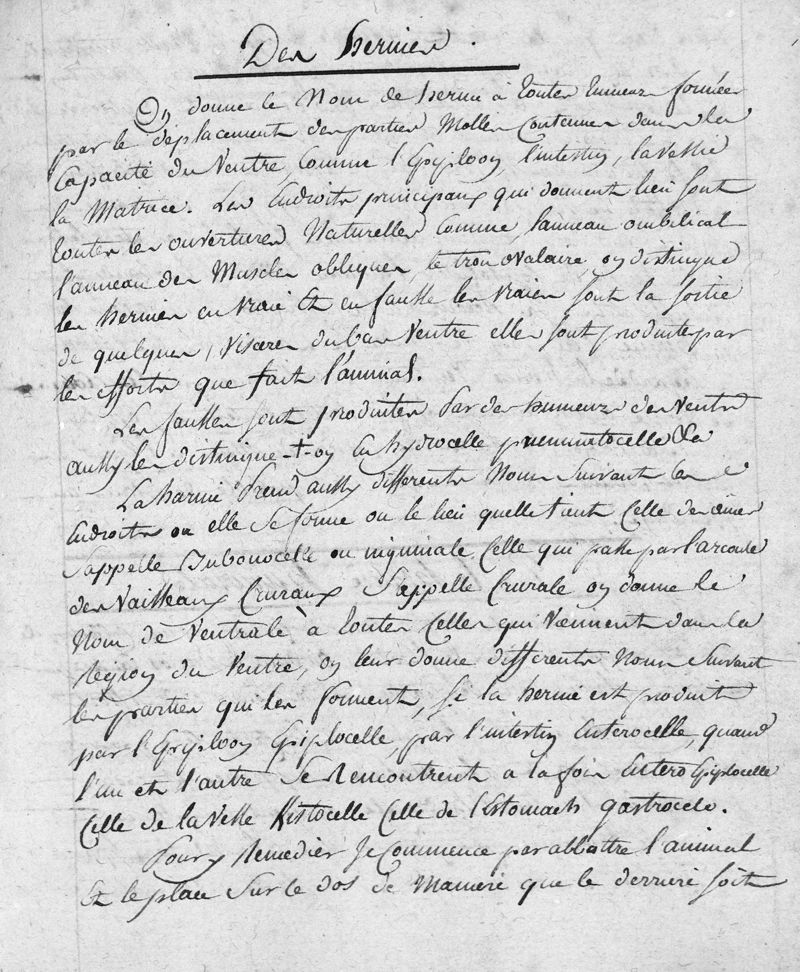 Des hernies.
On donne le Nom de hernie à toutes Eumeurs formées
par le deplacement des parties Molles Contenues dans la
Capacité du Ventre, Comme l'Epiploon, l'intestin, la Vessie
la Matrice. Les Endroits principaux qui donnent lieu sont
toutes les ouvertures Naturelles Comme, lanneau ombilical
l'anneau des Muscles obliques, le trou ovalaire, on distingue
les hernies en vraie Et en fausse les vraies sont la sortie
de quelques, visceres du bas ventre elles sont produite par
les efforts que fait l'animal.
Les fausses sont produites Par des humeurs du Ventre
aussy les distingue-t-on En hydrocelle pneumatocelle &c
La harnie Prend aussy differents Noms Suivant les
Endroits ou elle se forme ou le lieu quelle tient Celle des aines
S'appelle Bubonocelle ou inguinale, Celle qui passe par l'arcade
des Vaisseaux Cruraux S'appelle Crurale on donne le
Nom de Ventrale à toutes Celles qui viennent dans la
Région du Ventre, on leur donne differents Noms Suivant
les parties qui les forment, Si la hernie est produit
par l'Epiploon Epiplocelle, par l'intestin Enterocelle, quand
l'un et l'autre Se Rencontrent a la fois Entero Epiplocelle
Celle de la vessie Kistocelle Celle de l'Estomach gastrocele.
Pour y Remedier Je Commence par abbattre l'animal
Et le place Sur le dos de Manieré que le derrière soit